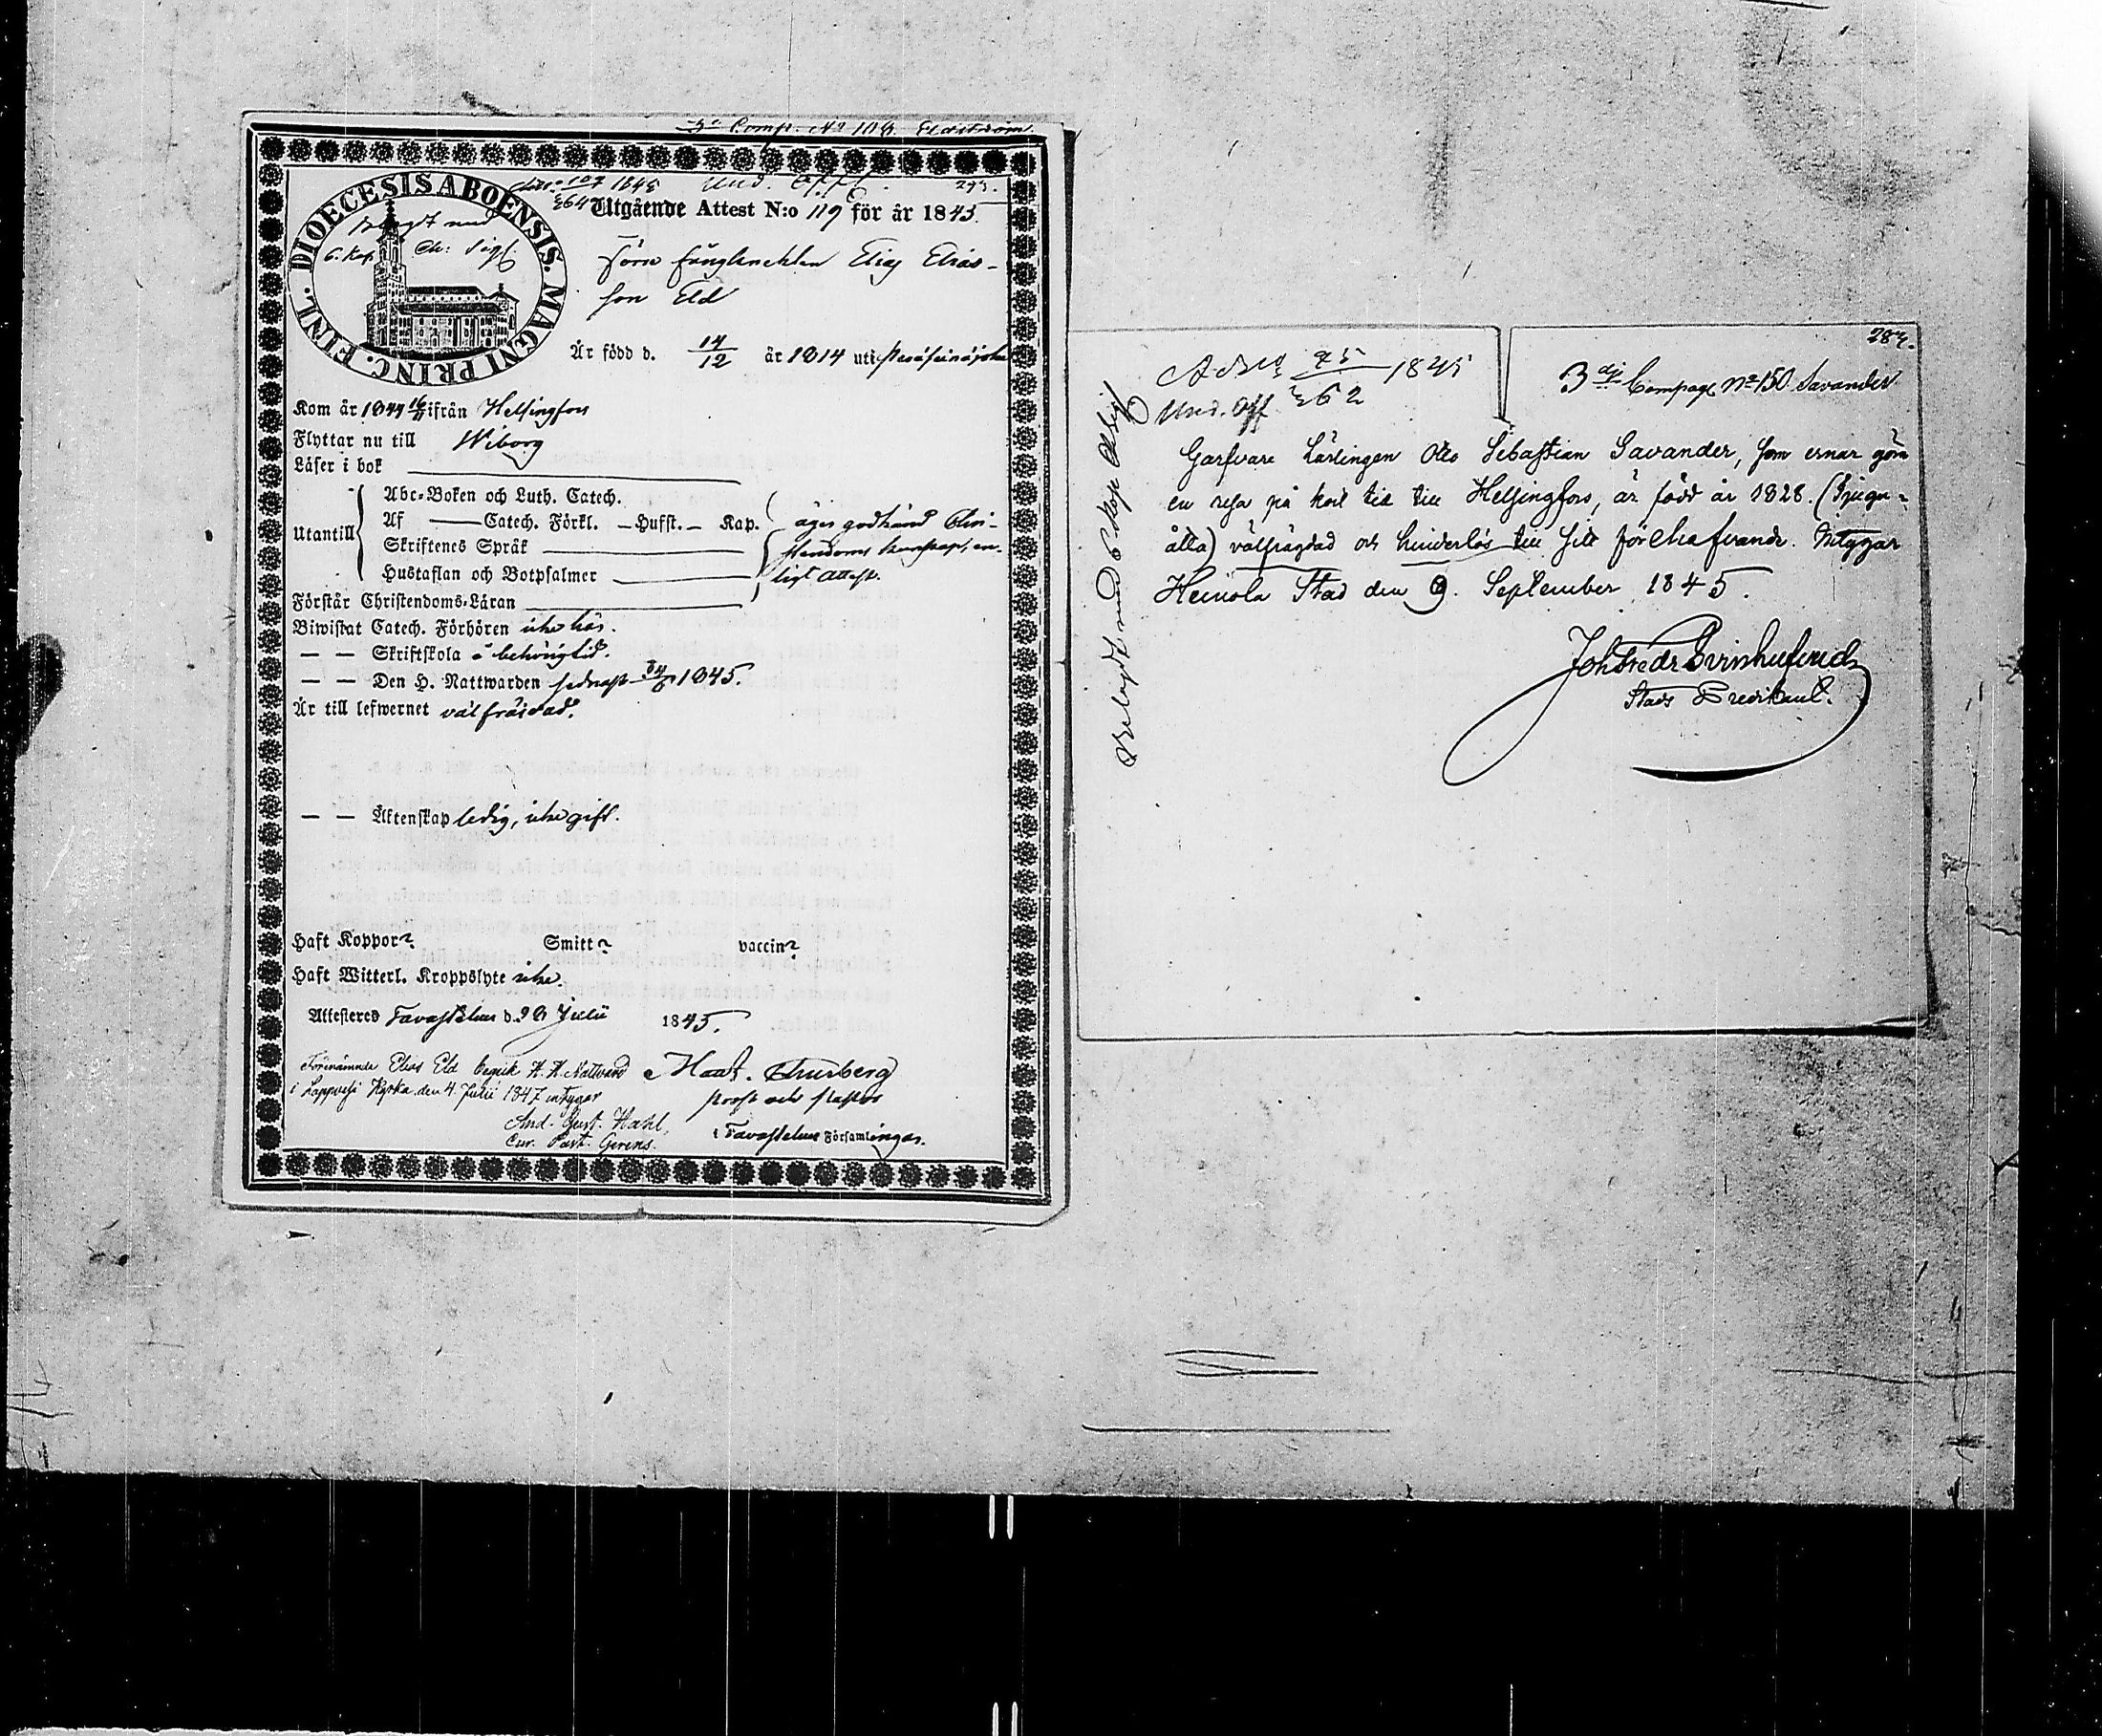 3e Comp. No 108 Eldström
DIOECESIS ABOENSIS. MAGNI PRINC. FINL.
Belagdt med
6. Kop. Ch: Sigl
107 1845 Und. Off.
Utgående Attest N:o 119 för år 1845.
Förre fångknekten Elias Elias-
son Eld
Är född d. 14/12 år 1814 uti
Kom år 1844 ifrån Helsingfors
Flyttar nu till Wiborg
Läser i bok
Utantill
Abc-Boken och Luth. Catech.
Af — Catech. Förkl. — Husst. — Kap.
Skriftenes Språk
Hustaflan och Botpsalmer
äger godkänd Chri-
stendoms kunskap, en-
ligt attest.
Förstår Christendoms-Läran
Biwistat Catech. Förhören icke här.
— — Skriftskola å behörig tid.
— — Den H. Nattwarden sednast 1845.
Är till lefwernet välfräjdad.
— — Äktenskap ledig, icke gift.
Haft Koppor? Smitt? vaccin?
Haft Witterl. Kroppslyte icke.
Attesteres Tavastehus d. 28 Julii 1845.
Förenämnde Elias Eld begick H. H. Nattvard
i Lappvesi Kyrka den 4. Julii 1847 intygar
And. Gust. Wahl,
Cur. Past. Gerens.
Thurberg
Prost och Pastor
i Tavastehus Församlingar.
284.
1845
Und. Off. 362
3dj Compag No 150 Savander
Belagdt med 6 Kop Ch Sigl
Garfvare Lärlingen Otto Sebastian Savander, som ernar göra
en resa på kort tid till Helsingfors, är född år 1828. (Tjugu-
åtta) välfrägdad och hinderlös till sitt förehafvande. Intygar
Heinola Stad den 9. September 1845.
Joh Fredr Svinhufvud
Stads Predikant.